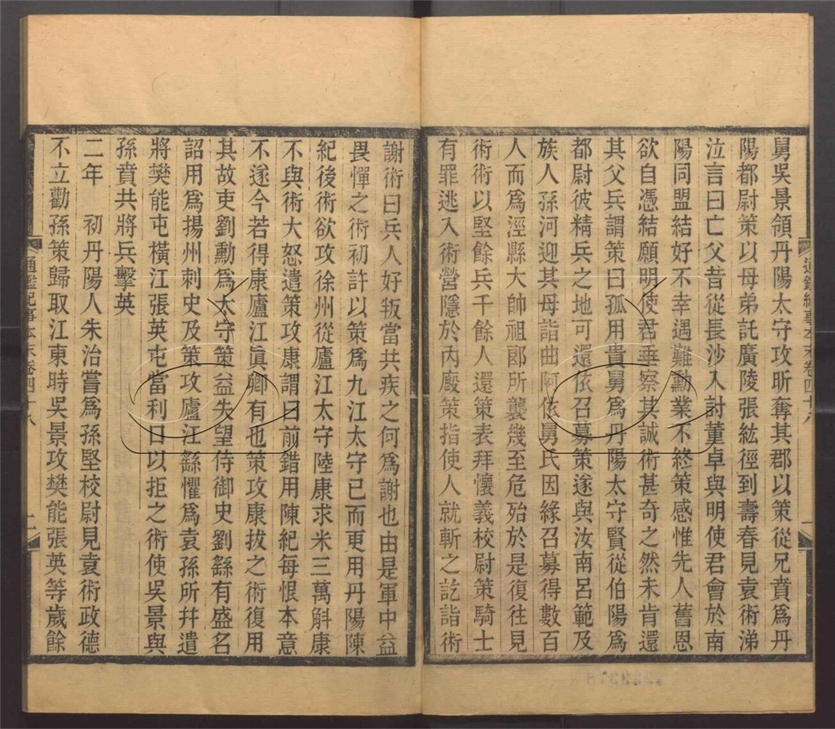 舅吳景領丹陽太守攻昕奪其郡以策從兄賁爲丹
陽都尉策以母弟託廣陵張紘徑到壽春見袁術涕
泣言曰亡父昔從長沙入討董卓與明使君會於南
陽同盟結好不幸遇難勳業不終策感惟先人舊恩
欲自憑結願明使君垂察其誠術甚奇之然未肯還
其父兵謂策曰孤用貴舅爲丹陽太守賢從伯陽爲
都尉彼精兵之地可還依召募策遂與汝南呂範及
族人孫河迎其母詣曲阿依舅氏因緣召募得數百
人而爲涇縣大帥祖郎所襲幾至危殆於是復往見
術術以堅餘兵千餘人還策表拜懷義校尉策騎士
有罪逃入術營隱於內廄策指使人就斬之訖詣術
謝術曰兵人好叛當共疾之何爲謝也由是軍中益
畏憚之術初許以策爲九江太守已而更用丹陽陳
紀後術欲攻徐州從廬江太守陸康求米三萬斛康
不與術大怒遣策攻康謂曰前錯用陳紀每恨本意
不遂今若得康廬江眞卿有也策攻康拔之術復用
其故吏劉勳爲太守策益失望侍御史劉繇有盛名
詔用爲揚州刺史及策攻廬江繇懼爲袁孫所幷遣
將樊能屯橫江張英屯當利口以拒之術使吳景與
孫賁共將兵擊英
二年　初丹陽人朱治嘗爲孫堅校尉見袁術政德
不立勸孫策歸取江東時吳景攻樊能張英等歲餘
通鑑紀事本末卷四十八